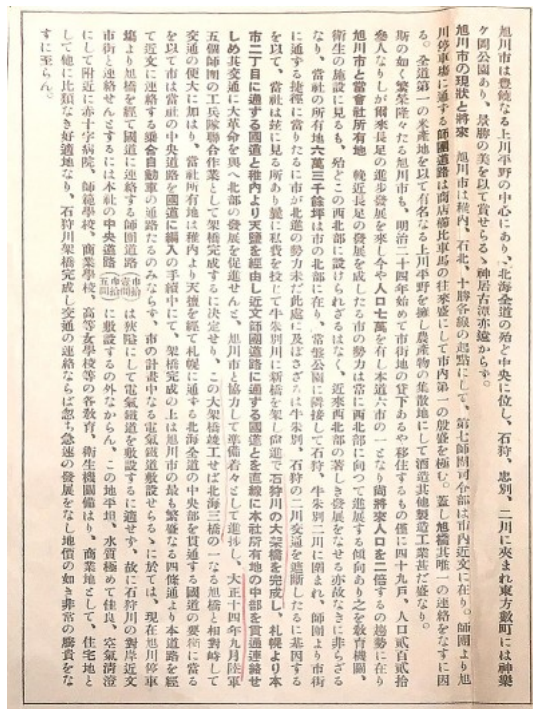 旭川市は豊饒なる上川平野の中心にあり、北海全道の殆と中央に位し、石狩、忠別、二川に夾まれ東方數町には神樂
ケ岡公園あり、景勝の美を以て賞せらるゝ神居古潭亦遠からず。
旭川市の現狀と將來　旭川市は稚内、石北、十勝各線の起點にして、第七師團司令部は市内近文に在り。師團より旭
川停車塲に通ずる師團道路は商店櫛比車馬の往來盛にして市内第一の殷盛を極む。蓋し旭橋其唯一の連絡をなすに因
る。全道第一の米產地を以て有名なる上川平野を擁し農產物の集散地にして酒造其他製造工業甚だ盛なり。
斯の如く繁榮隆々たる旭川市も、明治二十四年始めて市街地の貸下あるや移住するもの僅に四十九戸、人口貳百貳拾
參人なりしが爾來長足の進歩發展を來し今や人口七萬を有し本道六市の一となり尙將來人口を二倍するの趨勢に在り
旭川市と當會社所有地　輓近長足の發展を成したる市の勢力は常に西北部に向つて進展する傾向あり之を敎育機關、
衛生の施設に見るも、殆どこの西北部に設けられざるはなく、近來西北部の著しき發展をなせる亦故なきに非らざる
なり、當社の所有地六萬三千餘坪は市の北部に在り、常盤公園に隣接して石狩、牛朱別二川に圍まれ、師團より市街
に通ずる捷徑に當りたるに市が北進の勢力未だ此處に及ばさるは牛朱別、石狩の二川交通を遮斷したるに基因する
を以て、當社は玆に見る所あり曩に私費を投じて牛朱別川に新橋を架し尙進で石狩川の大架橋を完成し、札幌より本
市二丁目に通ずる國道と稚内より天鹽を經由し近文師團道路に通ずる國道とを直線に本社所有地の中部を貫通連絡せ
しめ其交通に大革命を與へ北部の發展を促進せんと、旭川市と協力して準備着々として進捗し、大正十四年九月陸軍
五個師團の工兵隊聯合作業として架橋完成するに决定せり、この大架橋竣工せば北海三橋の一なる旭橋と相對峙して
交通の便大に加はり、當社所有地は稚内より天鹽を經て札幌に通ずる北海全道の中央部を貫通する國道の要衝に當る
を以て市は當社の中央道路を國道に編入の手續中にて、架橋完成の上は旭川市の最も繁盛なる四條通より本道路を經
て近文に連絡する乗合自動車の通路たるのみならず、市の計畫中なる電氣鐵道敷設せらるゝに於ては、現在旭川停車
塲より旭橋を經て國道に連絡する師團道路（市街壹間）は狹隘にして電氣鐵道を敷設するに適せず、故に石狩川の對岸近文
市街と連絡せんとするには本社の中央道路に敷設するの外なからん、この地平坦、水質極めて佳良、空氣淸澄
にして附近に赤十字病院、師範學校、商業學校、高等女學校等の各敎育、衛生機關備はり、商業地として、住宅地と
して他に比類なき好適地なり、石狩川架橋完成し交通の連絡ならば忽ち急速の發展をなし地價の如き非常の騰貴をな
すに至らん。